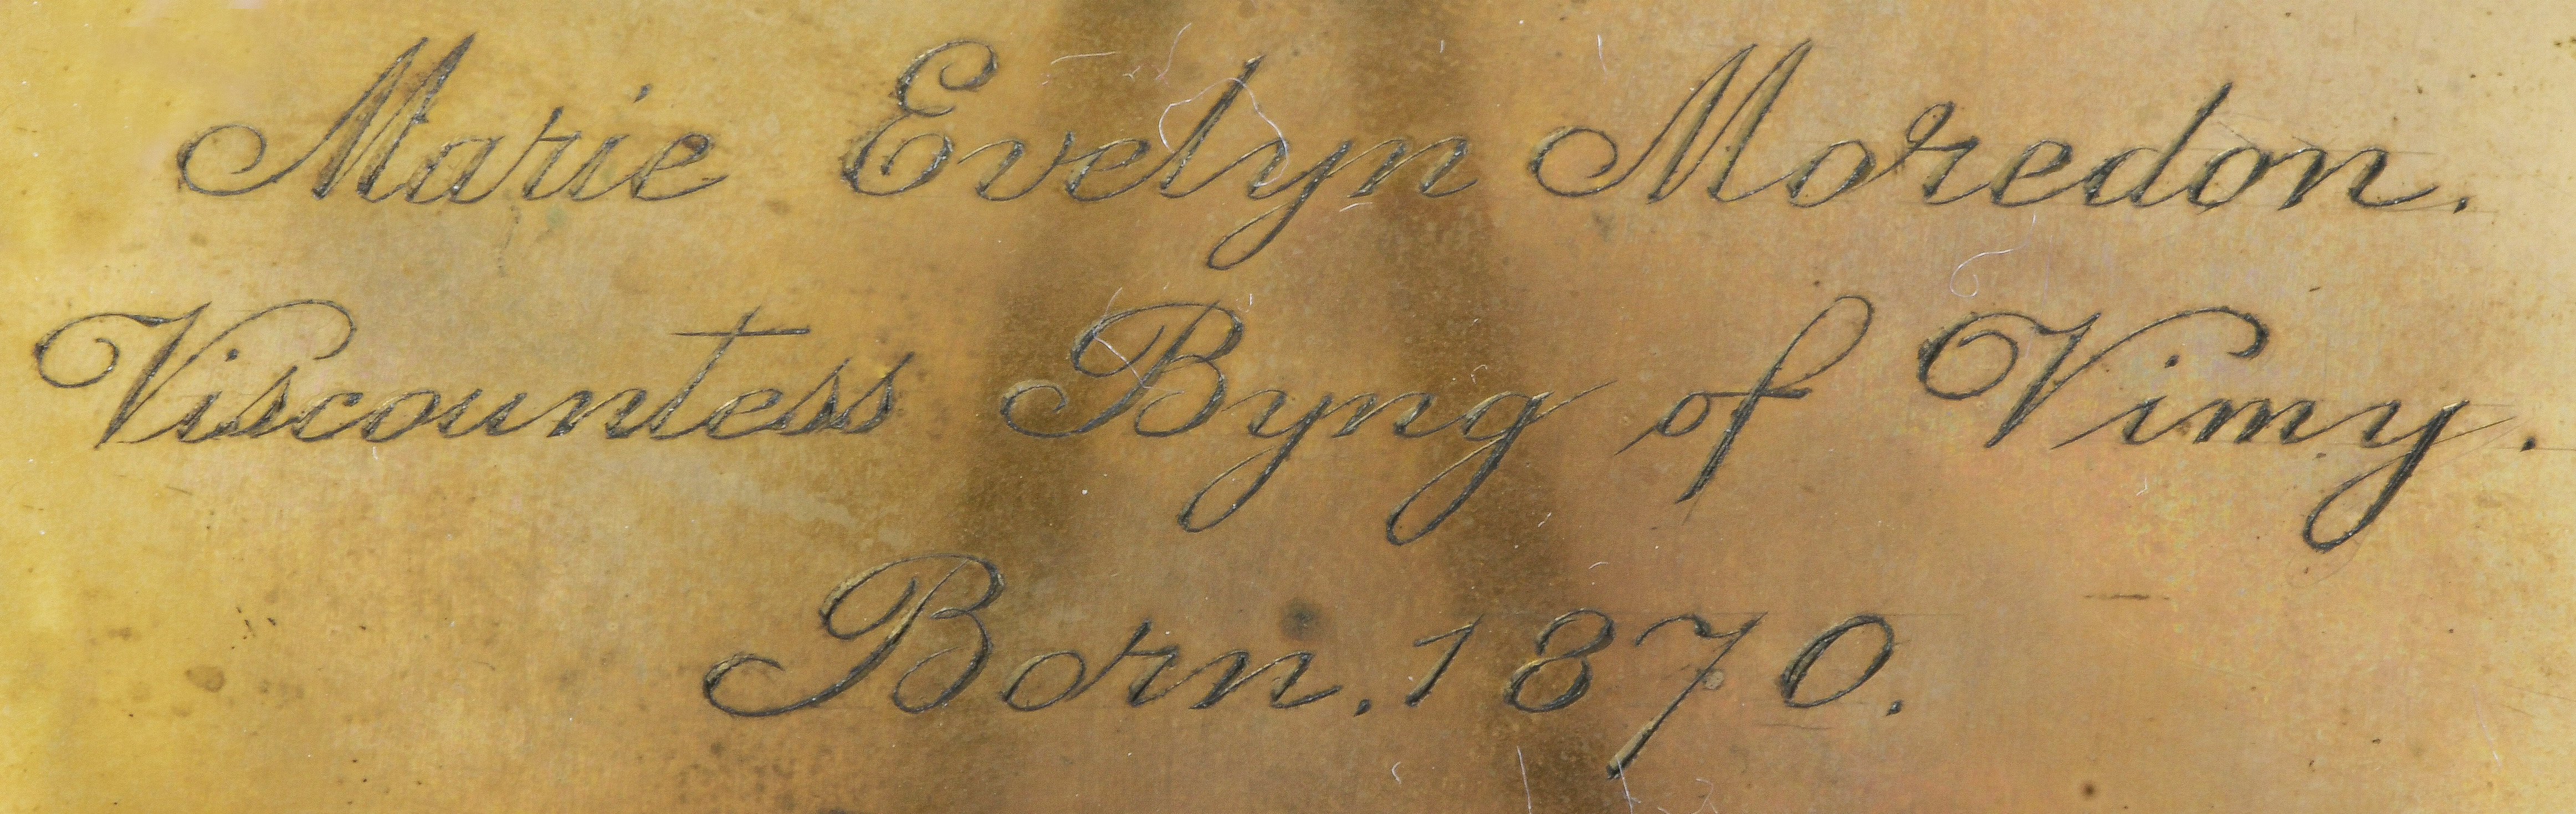 Marie Evelyn Moredon.
Viscountess Byng of Vimy.
Born. 1870.